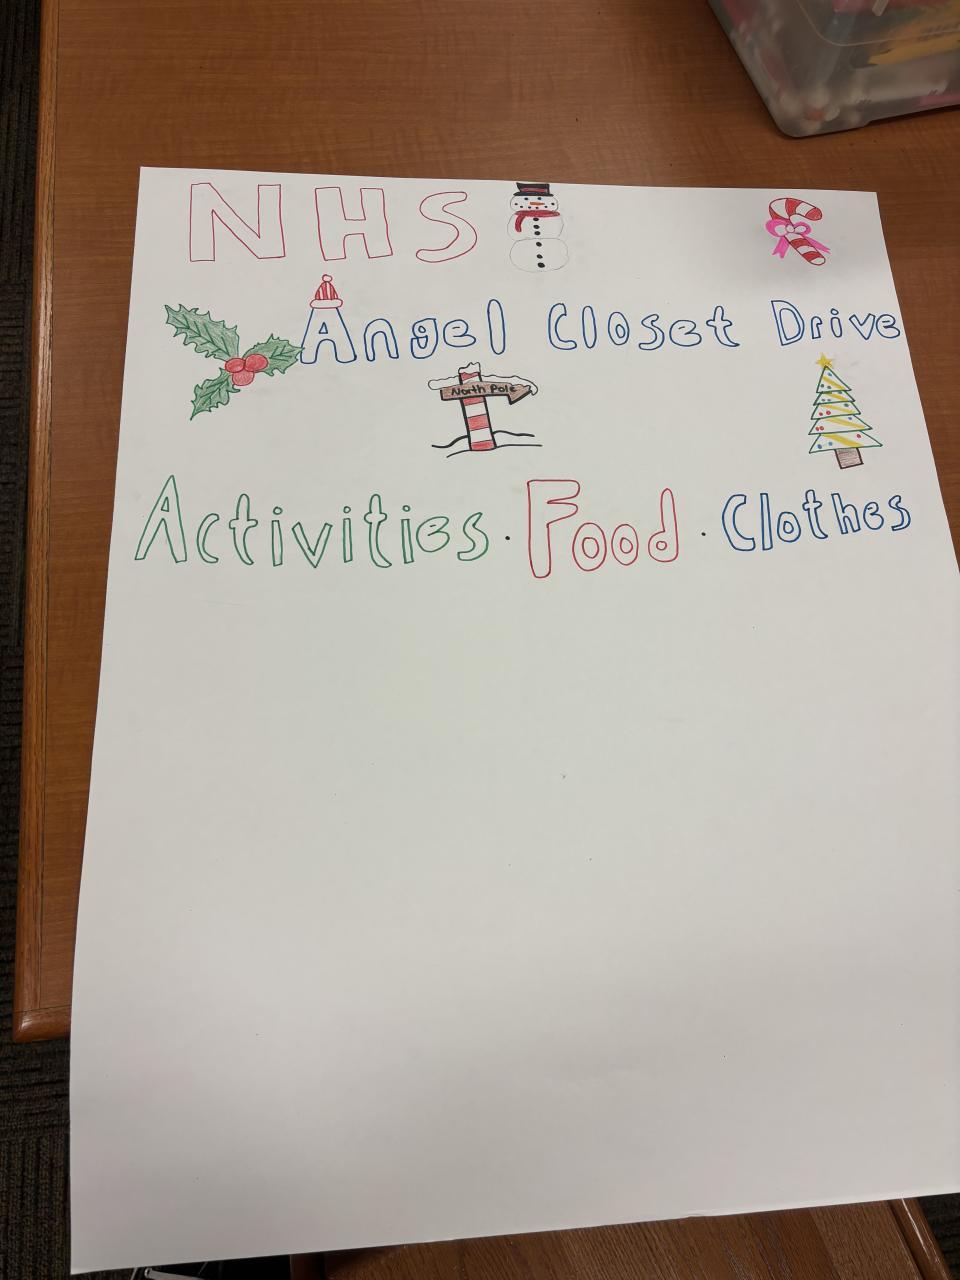 NHS
Angel Closet Drive
North Pole
Activities · Food · Clothes